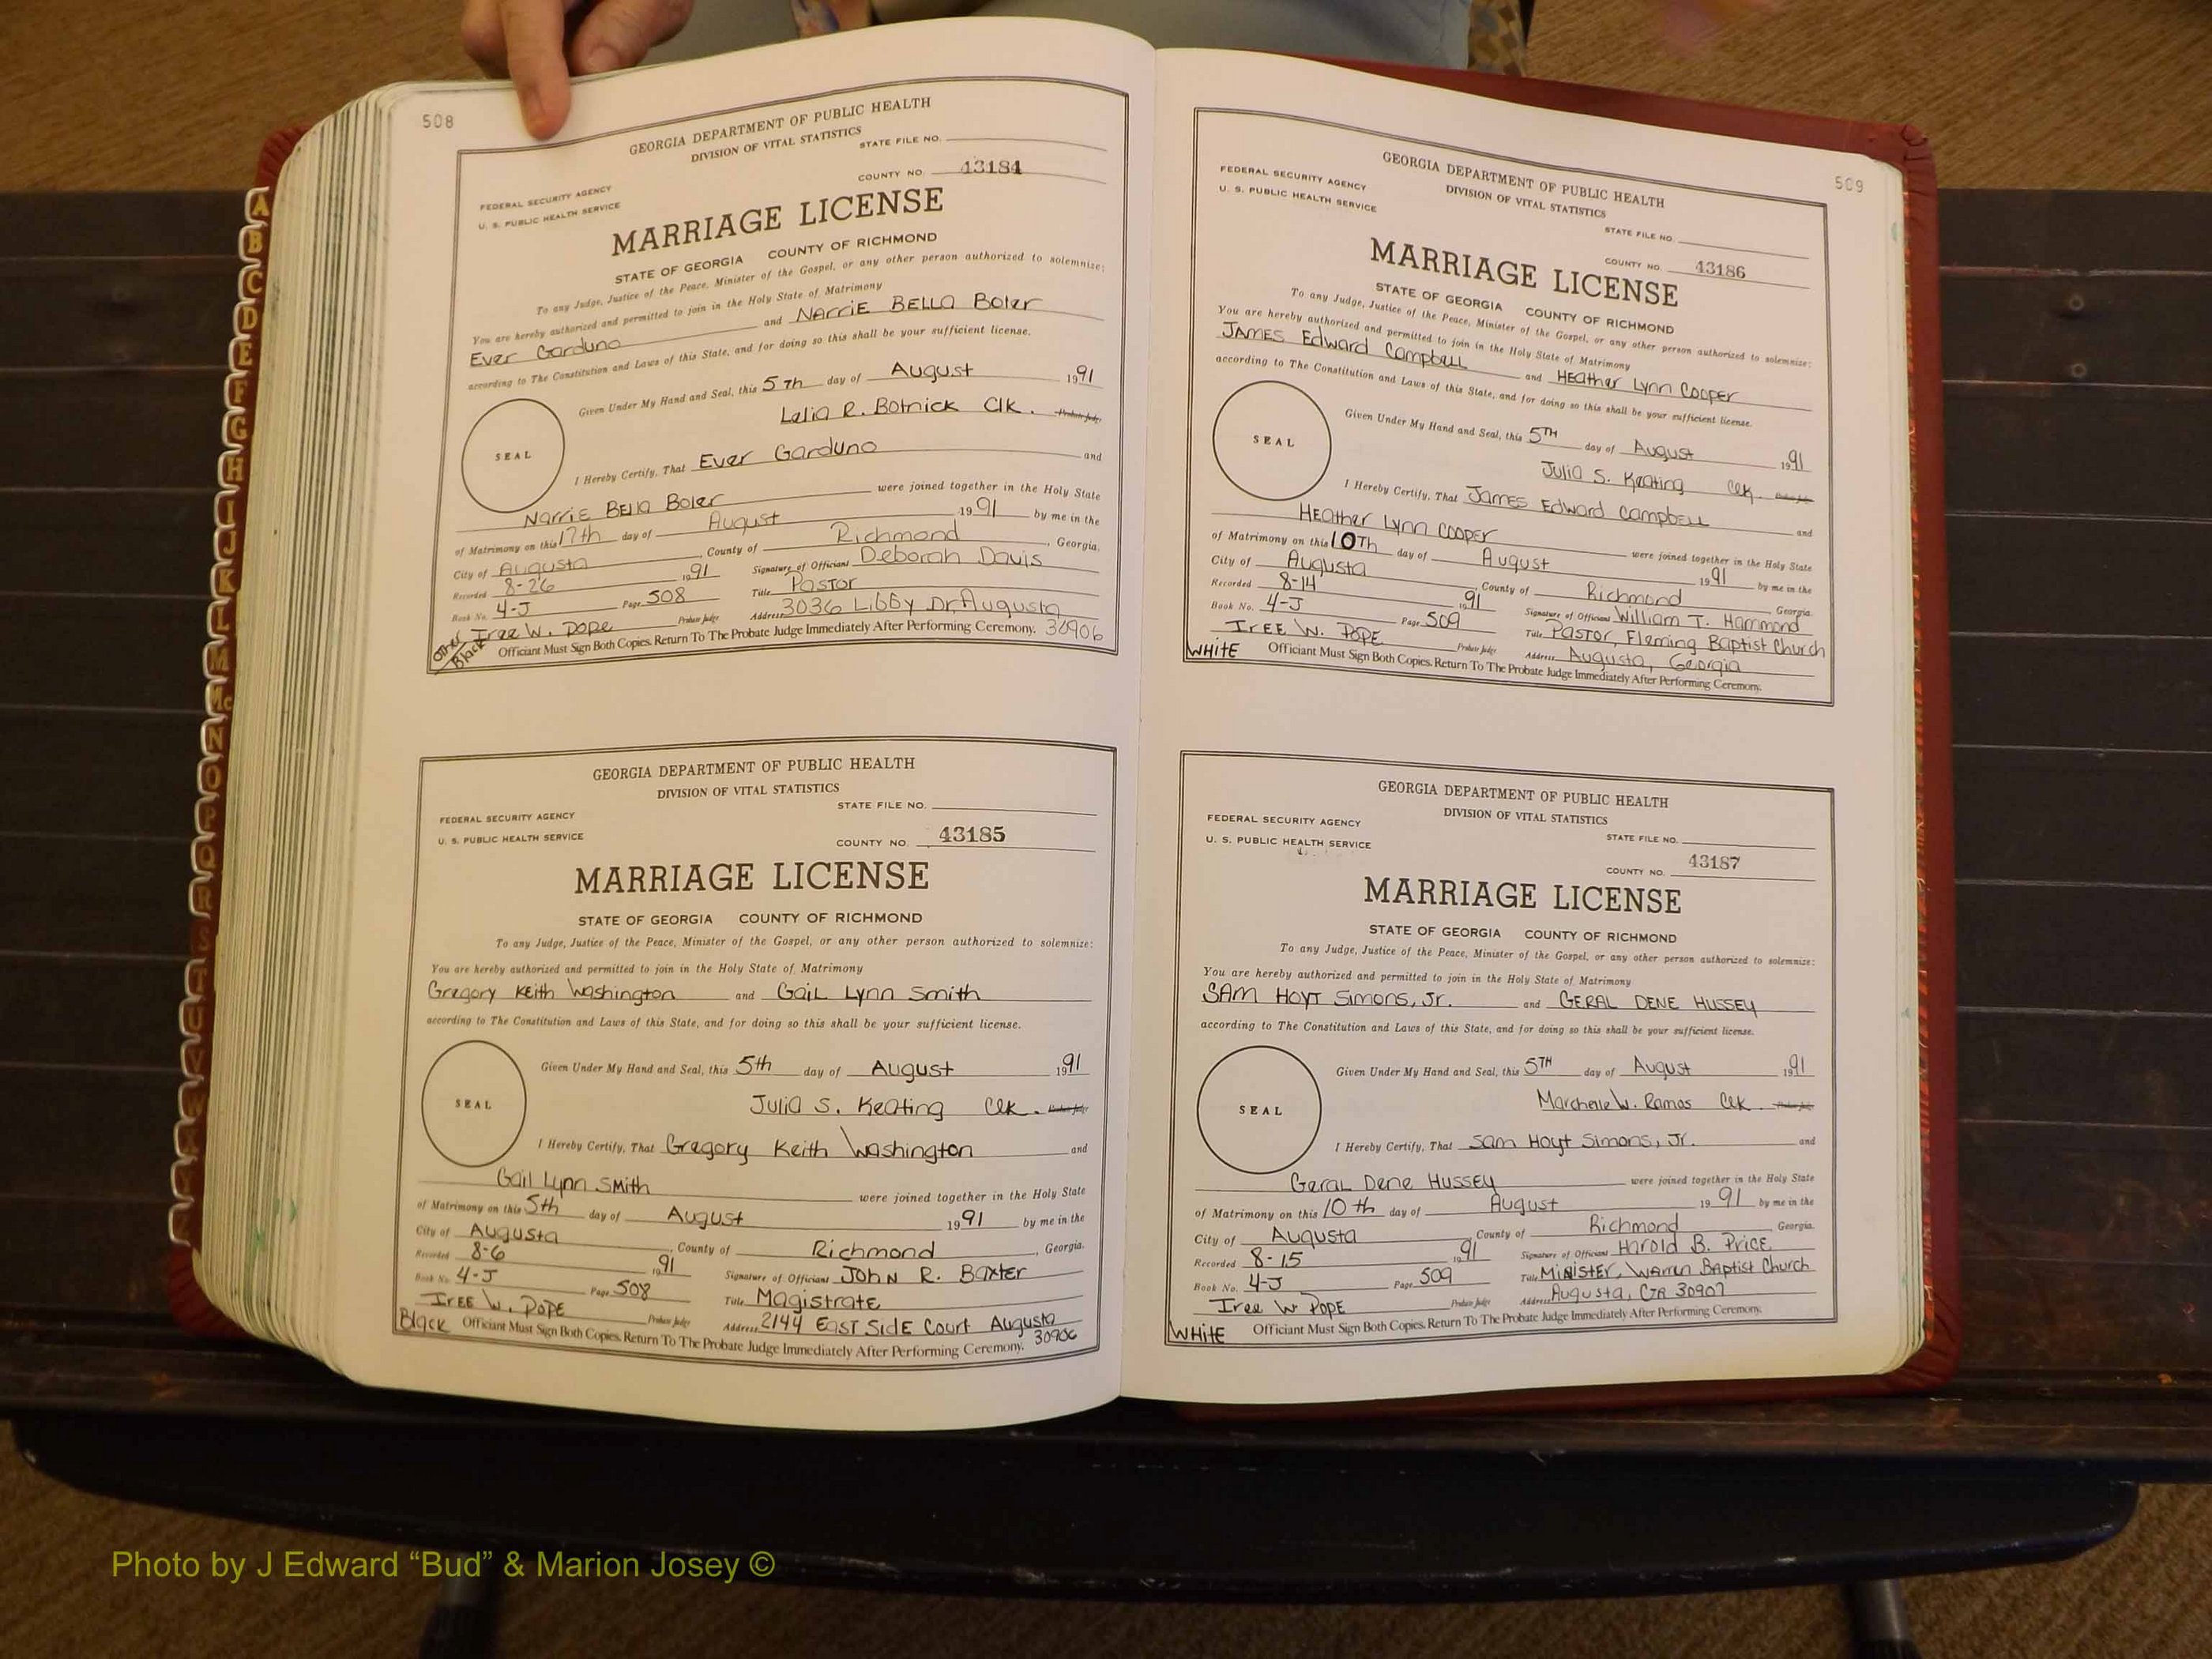 508
GEORGIA DEPARTMENT OF PUBLIC HEALTH
DIVISION OF VITAL STATISTICS
STATE FILE NO.
FEDERAL SECURITY AGENCY
COUNTY NO. 43184
U. S. PUBLIC HEALTH SERVICE
MARRIAGE LICENSE
STATE OF GEORGIA COUNTY OF RICHMOND
To any Judge, Justice of the Peace, Minister of the Gospel, or any other person authorized to solemnize:
You are hereby authorized and permitted to join in the Holy State of Matrimony
Ever Garduno and Narrie Bella Boler
according to The Constitution and Laws of this State, and for doing so this shall be your sufficient license.
Given Under My Hand and Seal, this 5th day of August 1991
Lelia R. Botnick Clk. Probate Judge
SEAL
I Hereby Certify, That Ever Garduno and
Narrie Bella Boler were joined together in the Holy State
of Matrimony on this 17th day of August 1991 by me in the
City of Augusta, County of Richmond, Georgia.
Recorded 8-26 1991 Signature of Officiant Deborah Davis
Book No. 4-J Page 508 Title Pastor
Iree W. Pope Probate Judge Address 3036 Libby Dr, Augusta
30906
Other
Black
Officiant Must Sign Both Copies. Return To The Probate Judge Immediately After Performing Ceremony.
GEORGIA DEPARTMENT OF PUBLIC HEALTH
DIVISION OF VITAL STATISTICS
STATE FILE NO.
FEDERAL SECURITY AGENCY
U. S. PUBLIC HEALTH SERVICE
COUNTY NO. 43185
MARRIAGE LICENSE
STATE OF GEORGIA COUNTY OF RICHMOND
To any Judge, Justice of the Peace, Minister of the Gospel, or any other person authorized to solemnize:
You are hereby authorized and permitted to join in the Holy State of Matrimony
Gregory Keith Washington and Gail Lynn Smith
according to The Constitution and Laws of this State, and for doing so this shall be your sufficient license.
Given Under My Hand and Seal, this 5th day of August 1991
Julia S. Keating Clk. Probate Judge
SEAL
I Hereby Certify, That Gregory Keith Washington and
Gail Lynn Smith were joined together in the Holy State
of Matrimony on this 5th day of August 1991 by me in the
City of Augusta, County of Richmond, Georgia.
Recorded 8-6 1991 Signature of Officiant John R. Baxter
Book No. 4-J Page 508 Title Magistrate
Iree W. Pope Probate Judge Address 2144 East Side Court Augusta
30906
Black Officiant Must Sign Both Copies. Return To The Probate Judge Immediately After Performing Ceremony.
509
GEORGIA DEPARTMENT OF PUBLIC HEALTH
DIVISION OF VITAL STATISTICS
FEDERAL SECURITY AGENCY
U. S. PUBLIC HEALTH SERVICE
STATE FILE NO.
COUNTY NO. 43186
MARRIAGE LICENSE
STATE OF GEORGIA COUNTY OF RICHMOND
To any Judge, Justice of the Peace, Minister of the Gospel, or any other person authorized to solemnize:
You are hereby authorized and permitted to join in the Holy State of Matrimony
James Edward Campbell and Heather Lynn Cooper
according to The Constitution and Laws of this State, and for doing so this shall be your sufficient license.
Given Under My Hand and Seal, this 5TH day of August 1991
Julia S. Keating Clk. Probate Judge
SEAL
I Hereby Certify, That James Edward Campbell and
Heather Lynn Cooper were joined together in the Holy State
of Matrimony on this 10th day of August 1991 by me in the
City of Augusta, County of Richmond Georgia.
Recorded 8-14 1991 Signature of Officiant William T. Hammond
Book No. 4-J Page 509 Title Pastor, Fleming Baptist Church
Iree W. Pope Probate Judge Address Augusta, Georgia
White Officiant Must Sign Both Copies. Return To The Probate Judge Immediately After Performing Ceremony.
GEORGIA DEPARTMENT OF PUBLIC HEALTH
DIVISION OF VITAL STATISTICS
FEDERAL SECURITY AGENCY
STATE FILE NO.
U. S. PUBLIC HEALTH SERVICE
COUNTY NO. 43187
MARRIAGE LICENSE
STATE OF GEORGIA COUNTY OF RICHMOND
To any Judge, Justice of the Peace, Minister of the Gospel, or any other person authorized to solemnize:
You are hereby authorized and permitted to join in the Holy State of Matrimony
Sam Hoyt Simons, Jr. and Geral Dene Hussey
according to The Constitution and Laws of this State, and for doing so this shall be your sufficient license.
Given Under My Hand and Seal, this 5TH day of August 1991
Marchelle W. Ramos Clk. Probate Judge
SEAL
I Hereby Certify, That Sam Hoyt Simons, Jr. and
Geral Dene Hussey were joined together in the Holy State
of Matrimony on this 10th day of August 1991 by me in the
City of Augusta, County of Richmond, Georgia.
Recorded 8-15 1991 Signature of Officiant Harold B. Price
Book No. 4-J Page 509 Title Minister, Warren Baptist Church
Iree W Pope Probate Judge Address Augusta, GA 30907
White Officiant Must Sign Both Copies. Return To The Probate Judge Immediately After Performing Ceremony.
A
B
C
D
E
F
G
H
I
J
K
L
M
Mc
N
O
P
Q
R
S
T
U
V
Photo by J Edward “Bud” & Marion Josey ©